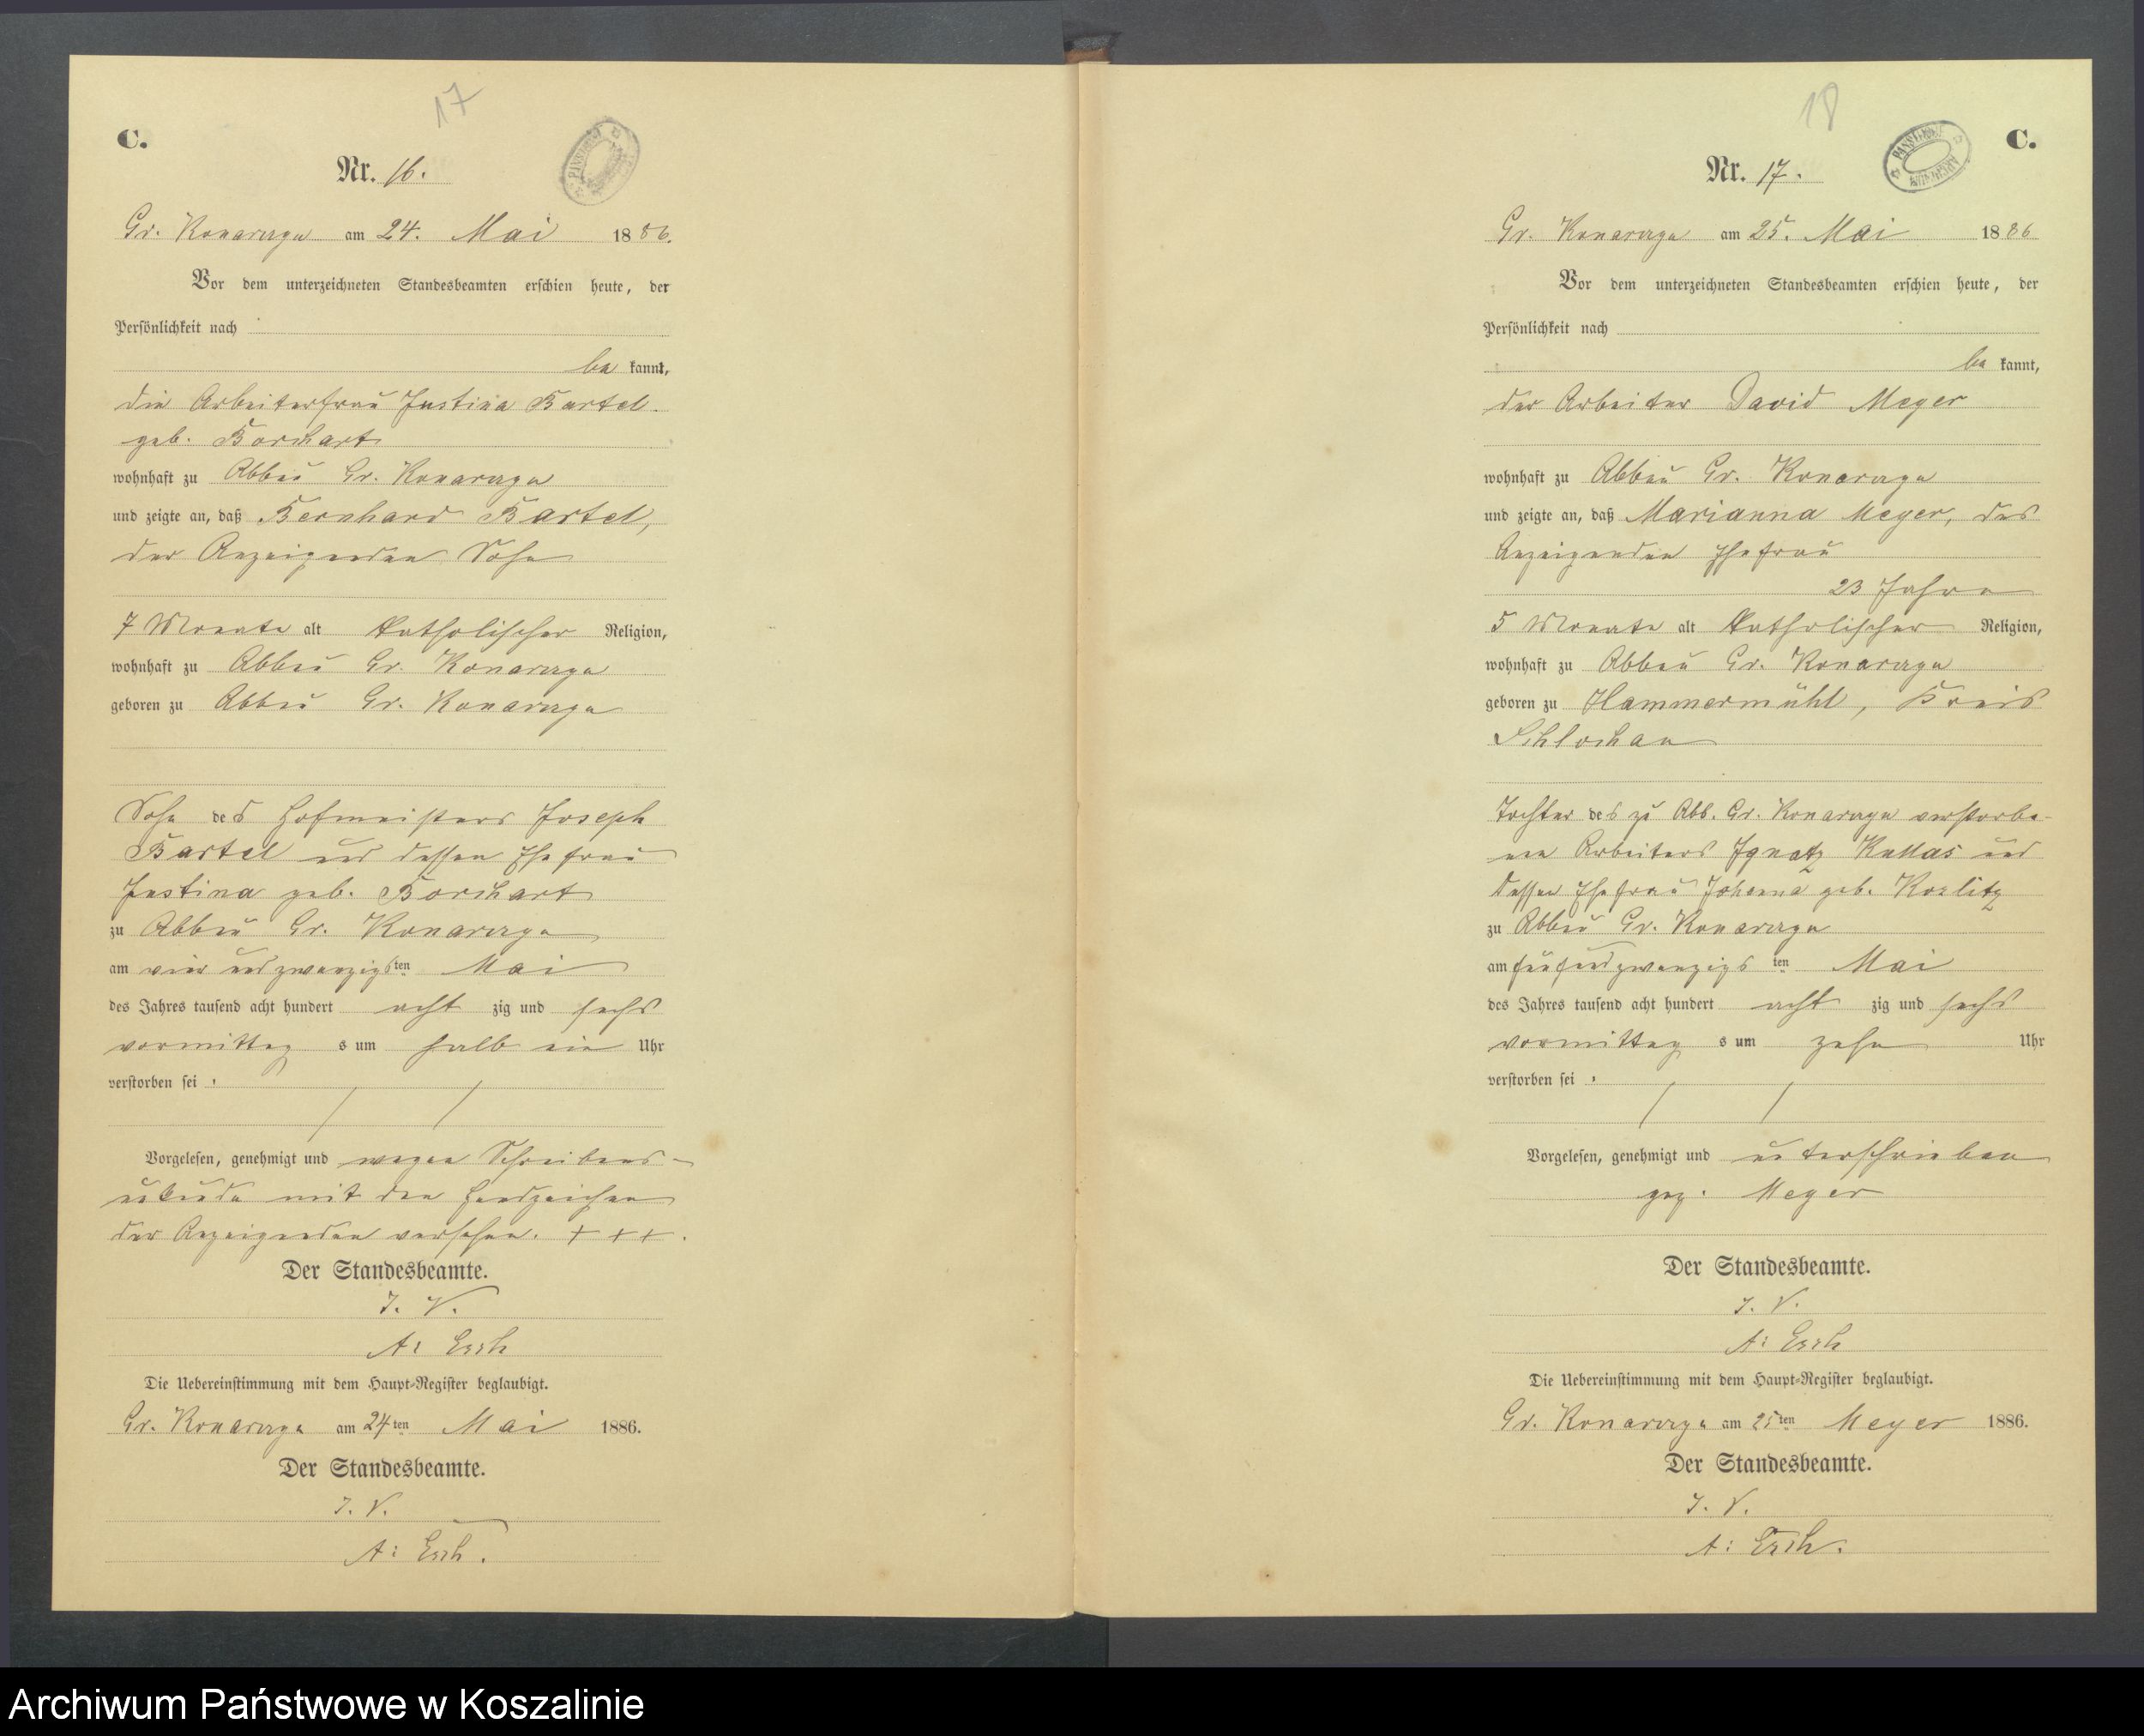 17
C.
Nr. 16.
Gr. Konarczyn am 24. Mai 1886.
Vor dem unterzeichneten Standesbeamten erschien heute, der
Persönlichkeit nach
be kannt,
die Arbeiterfrau Justina Bartel
geb. Borchart
wohnhaft zu Abbau Gr. Konarczyn
und zeigte an, daß Bernhard Bartel,
der Anzeigenden Sohn
7 Monate alt katholischer Religion,
wohnhaft zu Abbau Gr. Konarczyn
geboren zu Abbau Gr. Konarczyn
Sohn des Hofmeisters Joseph
Bartel und dessen Ehefrau
Justina geb. Borchart
zu Abbau Gr. Konarczyn
am vier und zwanzigsten Mai
des Jahres tausend acht hundert acht zig und sechs
vormittag s um halb ein Uhr
verstorben sei
Vorgelesen, genehmigt und wegen Schreibens-
unkunde mit den Handzeichen
der Anzeigenden versehen. + + +.
Der Standesbeamte.
I. V.
A: Esch
Die Uebereinstimmung mit dem Haupt-Register beglaubigt.
Gr. Konarczyn am 24ten Mai 1886.
Der Standesbeamte.
I. V.
A: Esch.
18
C.
Nr. 17.
Gr. Konarczyn am 25. Mai 1886
Vor dem unterzeichneten Standesbeamten erschien heute, der
Persönlichkeit nach
be kannt,
der Arbeiter David Meyer
wohnhaft zu Abbau Gr. Konarczyn
und zeigte an, daß Marianna Meyer, des
Anzeigenden Ehefrau
23 Jahre
5 Monate alt katholischer Religion,
wohnhaft zu Abbau Gr. Konarczyn
geboren zu Hammermühl, Kreis
Schlochau
Tochter des zu Abb. Gr. Konarczyn verstorbe-
nen Arbeiters Ignatz und
dessen Ehefrau Johanna geb. Kozlitz
zu Abbau Gr. Konarczyn
am fünfundzwanzigs ten Mai
des Jahres tausend acht hundert acht zig und sechs
vormittag s um zehn Uhr
verstorben sei
Vorgelesen, genehmigt und unterschrieben
gez. Meyer
Der Standesbeamte.
I. V.
A: Esch
Die Uebereinstimmung mit dem Haupt-Register beglaubigt.
Gr. Konarczyn am 25ten Meyer 1886.
Der Standesbeamte.
I. V.
A: Esch.
Archiwum Państwowe w Koszalinie